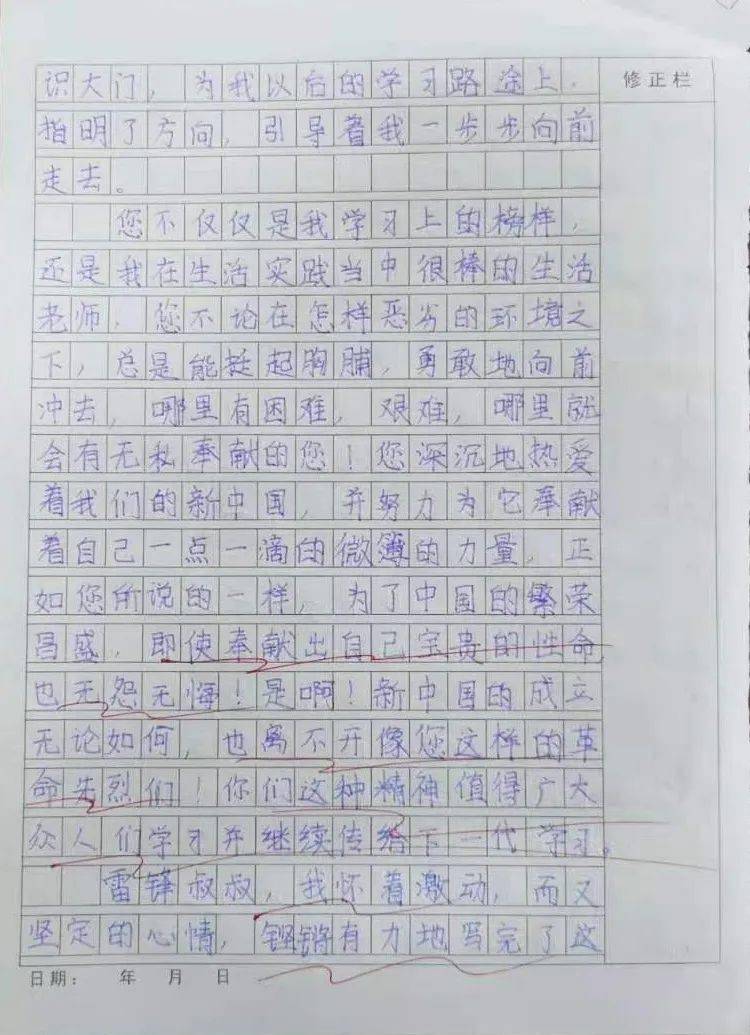 识大门，为我以后的学习路途上，
修正栏
指明了方向，引导着我一步步向前
走去。
您不仅仅是我学习上的榜样，
还是我在生活实践当中很棒的生活
老师，您不论在怎样恶劣的环境之
下，总是能挺起胸脯，勇敢地向前
冲去，哪里有困难，艰难，哪里就
会有无私奉献的您！您深沉地热爱
着我们的新中国，并努力为它奉献
着自己一点一滴的微簿的力量，正
如您所说的一样，为了中国的繁荣
昌盛，即使奉献出自己宝贵的性命
也无怨无悔！是啊！新中国的成立
无论如何，也离不开像您这样的革
命先烈们！你们这种精神值得广大
众人们学习并继续传给下一代学习。
雷锋叔叔，我怀着激动，而又
坚定的心情，铿锵有力地写完了这
日期： 年 月 日